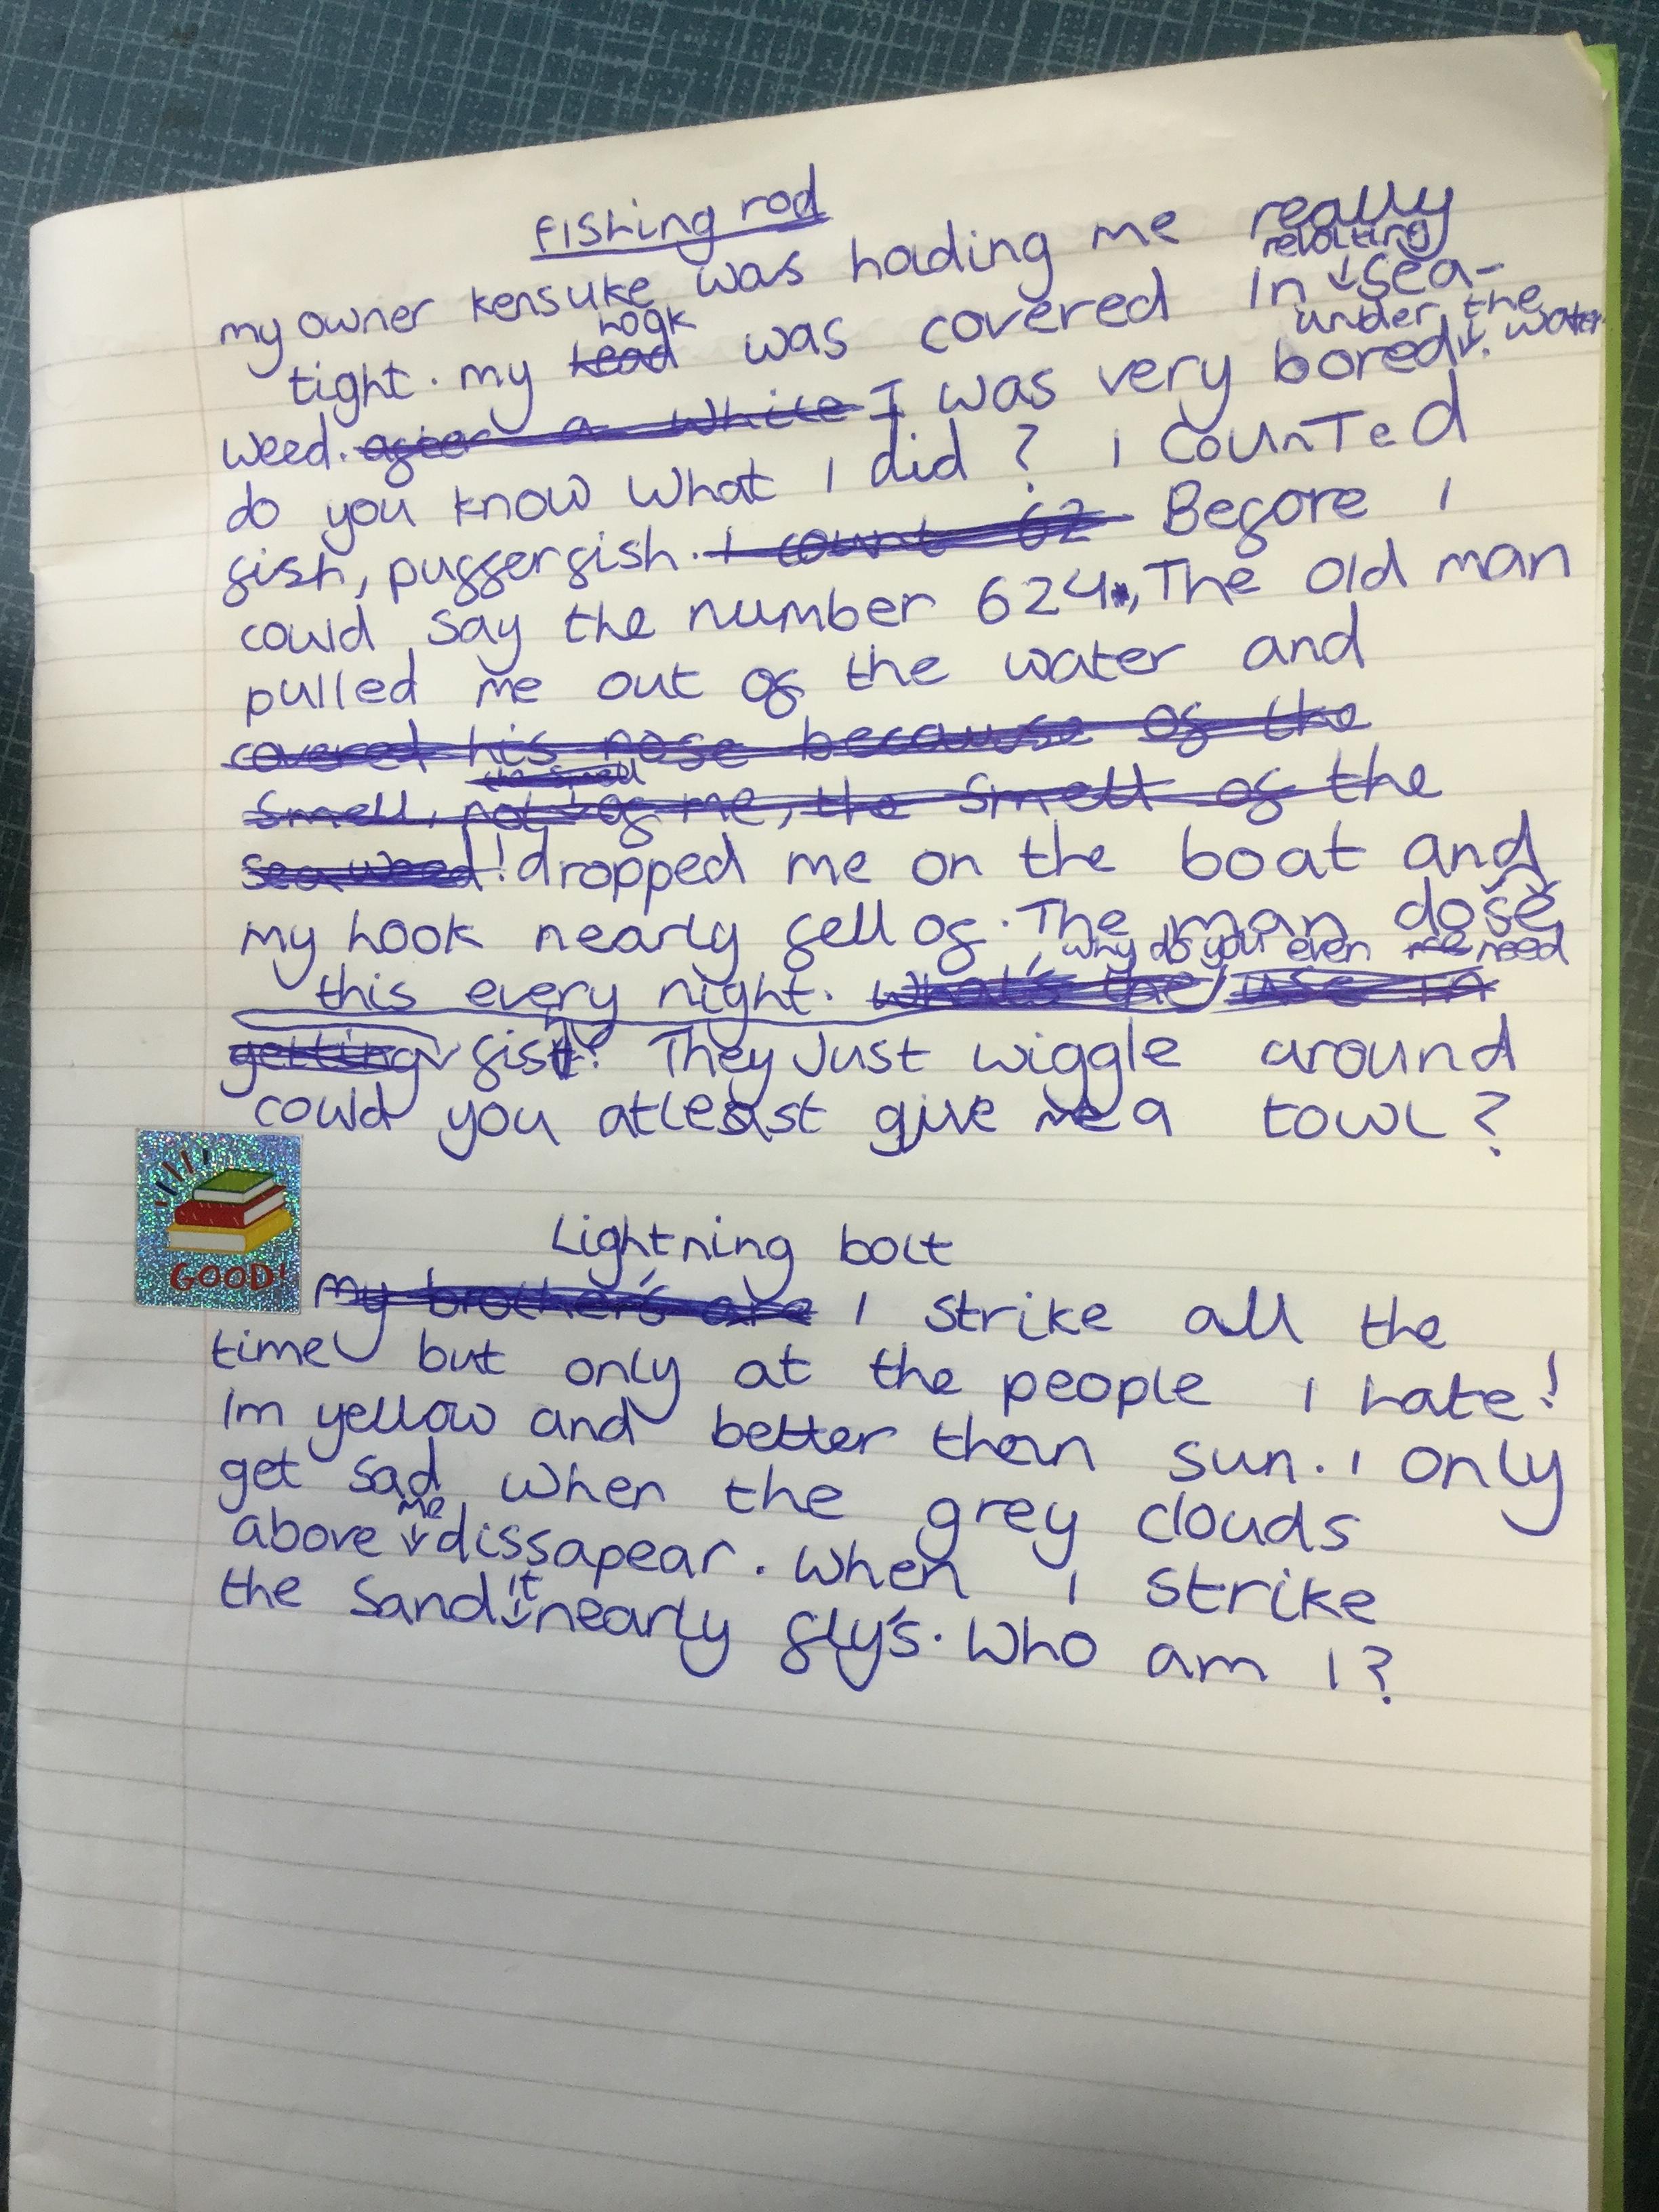 fishing rod
my owner kensuke was hoding me really
tight. my hook was covered in revolting sea-
weed. I was very bored under the water.
do you know what I did? i counTed
fish, pufferfish. Before I
could say the number 624, The old man
pulled me out of the water and
covered his nose because of the
smell, not the smell of me, the smell of the
sea weed! dropped me on the boat and
my hook nearly fell of. The man dose
this every night. why do you even need
fish? They Just wiggle around
could you atleast give me a towl?
GOOD!
Lightning bolt
My brother's are I strike all the
time but only at the people I hate!
Im yellow and better than sun. I only
get sad when the grey clouds
above me dissapear. When I strike
the sand it nearly fly's. Who am I?